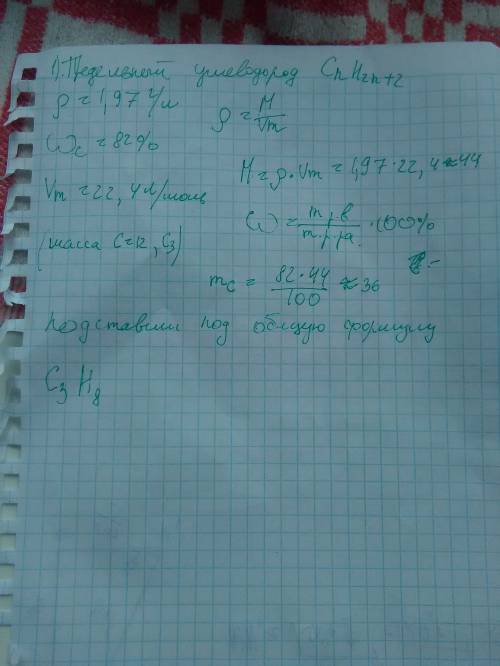 1) Предельный углеводород CnH2n+2
ρ = 1,97 г/л
ρ = M/Vm
ωc = 82%
M = ρ · Vm = 1,97 · 22,4 ≈ 44
Vm = 22,4 л/моль
ω = m.р.в/m.р.ра. · 100%
(масса C=12, C3)
mc = 82·44/100 ≈ 36
подставили под общую формулу
C3H8